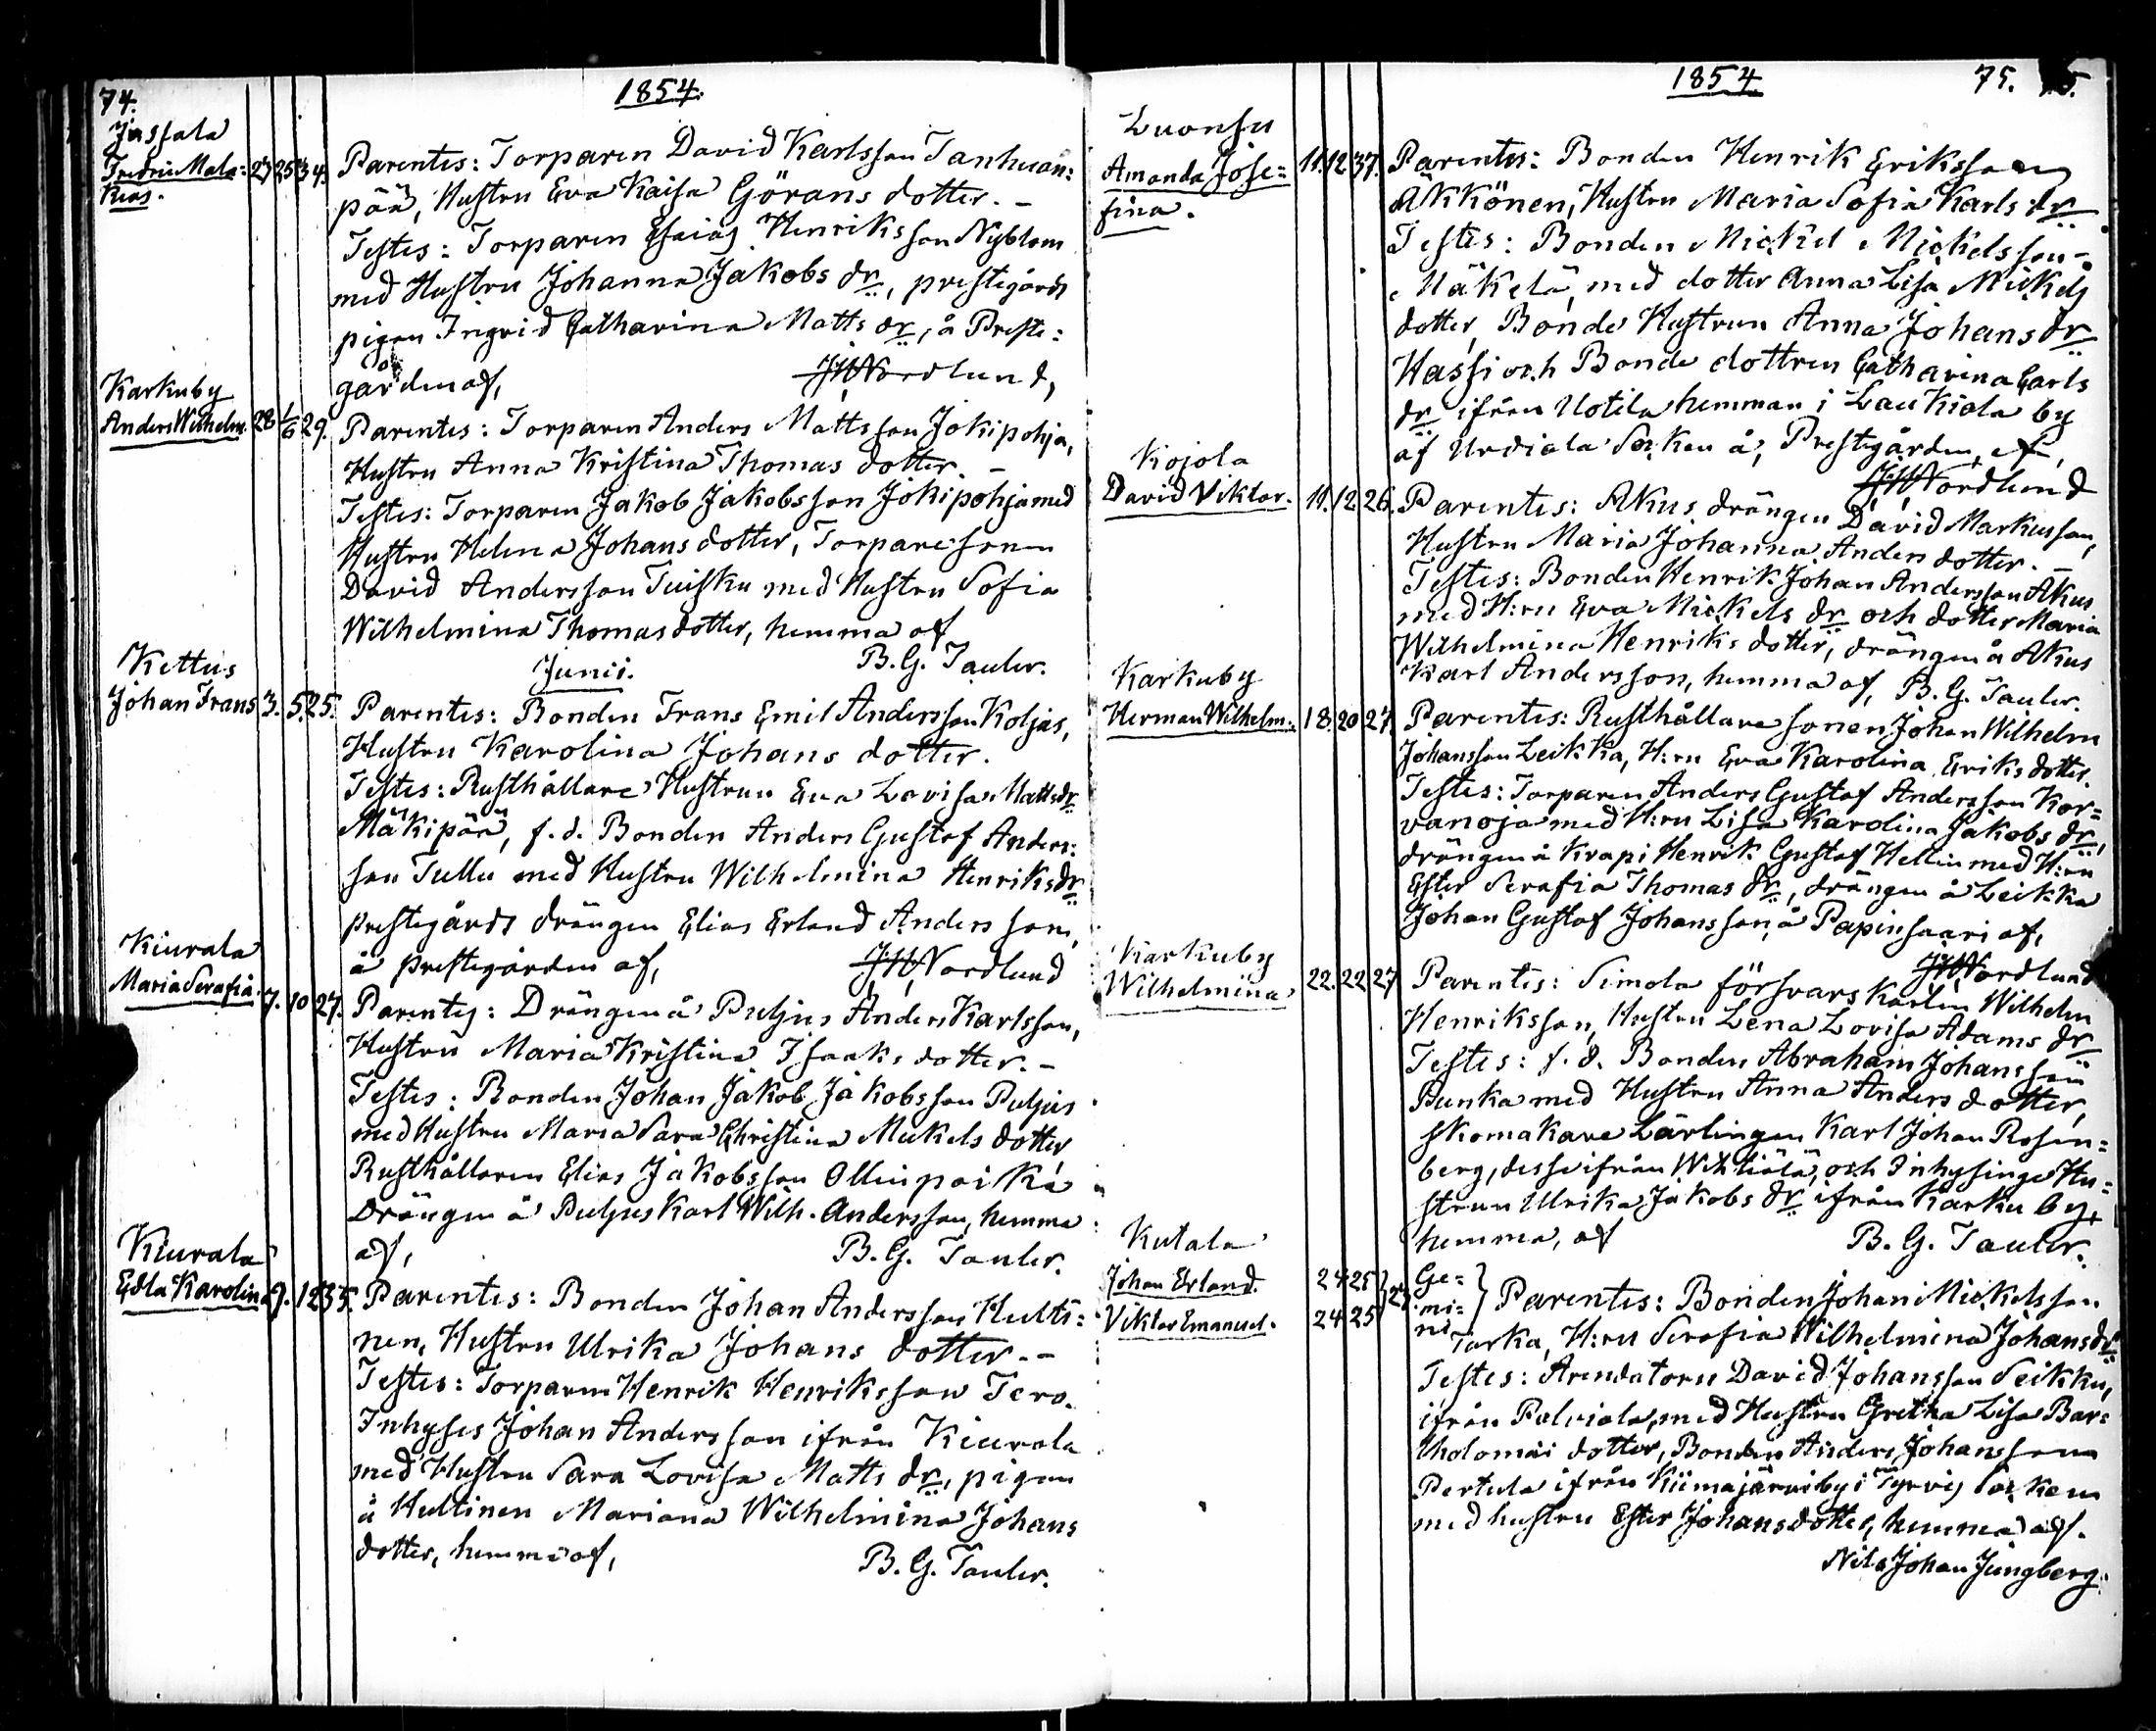 74.
1854.
Jussala
Fredric Mala=
kias.
27 25 34.
Parentes: Torparen David Karlsson Tanhuan=
pää, Hustru Eva Kaisa Görans dotter. –
Testes: Torparen Esaias Henriksson Nyblom
med Hustru Johanna Jakobs dr, prestgårds
pigan Ingrid Catharina Matts dr, å Preste=
gården af,
JWNordlund,
Karkuby
Anders Wilhelm.
28 1/6 29.
Parentes: Torparen Anders Mattsson Jokipohja,
Hustru Anna Kristina Thomas dotter. –
Testes: Torparen Jakob Jakobsson Jokipohja med
Hustru Helena Johans dotter, Torparesonen
David Andersson Tuisku med Hustru Sofia
Wilhelmina Thomas dotter, hemma af
B. G. Tauler.
Junii.
Kettus
Johan Frans
3. 5. 25.
Parentes: Bonden Frans Emil Andersson Koljas,
Hustru Karolina Johans dotter.
Testes: Rusthållare Hustrun Eva Lovisa Matts dr
Mäkipää, f. d. Bonden Anders Gustaf Anders=
son Tullu med Hustru Wilhelmina Henriks dr
prestegårds drängen Elias Erland Andersson,
å prestegården af,
JWNordlund
Kiurala
Maria Serafia.
7. 10 27.
Parentes: Drängen å Puljus Anders Karlsson,
Hustru Maria Kristina Isaaks dotter. –
Testes: Bonden Johan Jakob Jakobsson Puljus
med Hustru Maria Sara Christina Mickels dotter
Rusthållaren Elias Jakobsson Ollinpoika
Drängen å Puljus Karl Wilh. Andersson, hemma
af,
B. G. Tauler.
Kiurala
Edla Karolina
9. 12 35.
Parentes: Bonden Johan Andersson Hulti=
nen, Hustru Ulrika Johans dotter. –
Testes: Torparen Henrik Henriksson Tero.
Inhyses Johan Andersson ifrån Kiurala
med Hustru Sara Lovisa Matts dr, pigan
å Hultinen Mariana Wilhelmina Johans
dotter, hemma af,
B. G. Tauler.
1854.
75.
Luonsu
Amanda Jose=
fina.
11. 12 37.
Parentes: Bonden Henrik Eriksson
Äkkönen, Hustru Maria Sofia Karls dr
Testes: Bonden Mickel Mickelsson
Mäkelä, med dotter Anna Lisa Mickels
dotter, Bonde Hustrun Anna Johans dr
Hassi och Bonde dottren Catharina Carls
dr ifrån Uotila hemman i Laukiala by
af Urdiala Socken å, Prestgården, af,
JWNordlund
Kojola
David Viktor.
11. 12. 26.
Parentes: Akus drängen David Markusson,
Hustru Maria Johanna Anders dotter. –
Testes: Bonden Henrik Johan Andersson Akus
med H:ru Eva Mickels dr och dotter Maria
Wilhelmina Henriks dotter, drängen å Akus
Karl Andersson, hemma af, B. G. Tauler.
Karkuby
Herman Wilhelm.
18. 20 27.
Parentes: Rusthållare sonen Johan Wilhelm
Johansson Leikka, H:ru Eva Karolina Eriks dotter.
Testes: Torparen Anders Gustaf Andersson Kor=
vanoja med H:ru Lisa Karolina Jakobs dr,
drängen å Krapi Henrik Gustaf Hellin med H:ru
Ester Serafia Thomas dr, drängen å Leikka
Johan Gustaf Johansson, å Papinsaari af,
JWNordlund
Karkuby
Wilhelmina
22. 22 27
Parentes: Simola försvars karlen Wilhelm
Henriksson, Hustru Lena Lovisa Adams dr
Testes: f. d. Bonden Abraham Johansson
Punka med Hustru Anna Anders dotter,
Skomakare Lärlingen Karl Johan Rosen=
berg, desse ifrån Wihtiälä, och Inhysinge Hu=
strun Ulrika Jakobs dr ifrån Karku by,
hemma, af
B. G. Tauler.
Kutala
Johan Erland.
24 25
Viktor Emanuel.
24 25
Ge=
mi=
ni
Parentes: Bonden Johan Mickelsson
Torka, H:ru Serafia Wilhelmina Johans dr
Testes: Arendatorn David Johansson Seikku,
ifrån Palviala, med Hustru Gretha Lisa Bar=
tholomäi dotter, Bonden Anders Johansson
Pertula ifrån Kiimajärvi by i Tyrvis Socken
med hustru Ester Johansdotter, hemma af.
Nils Johan Jungberg.